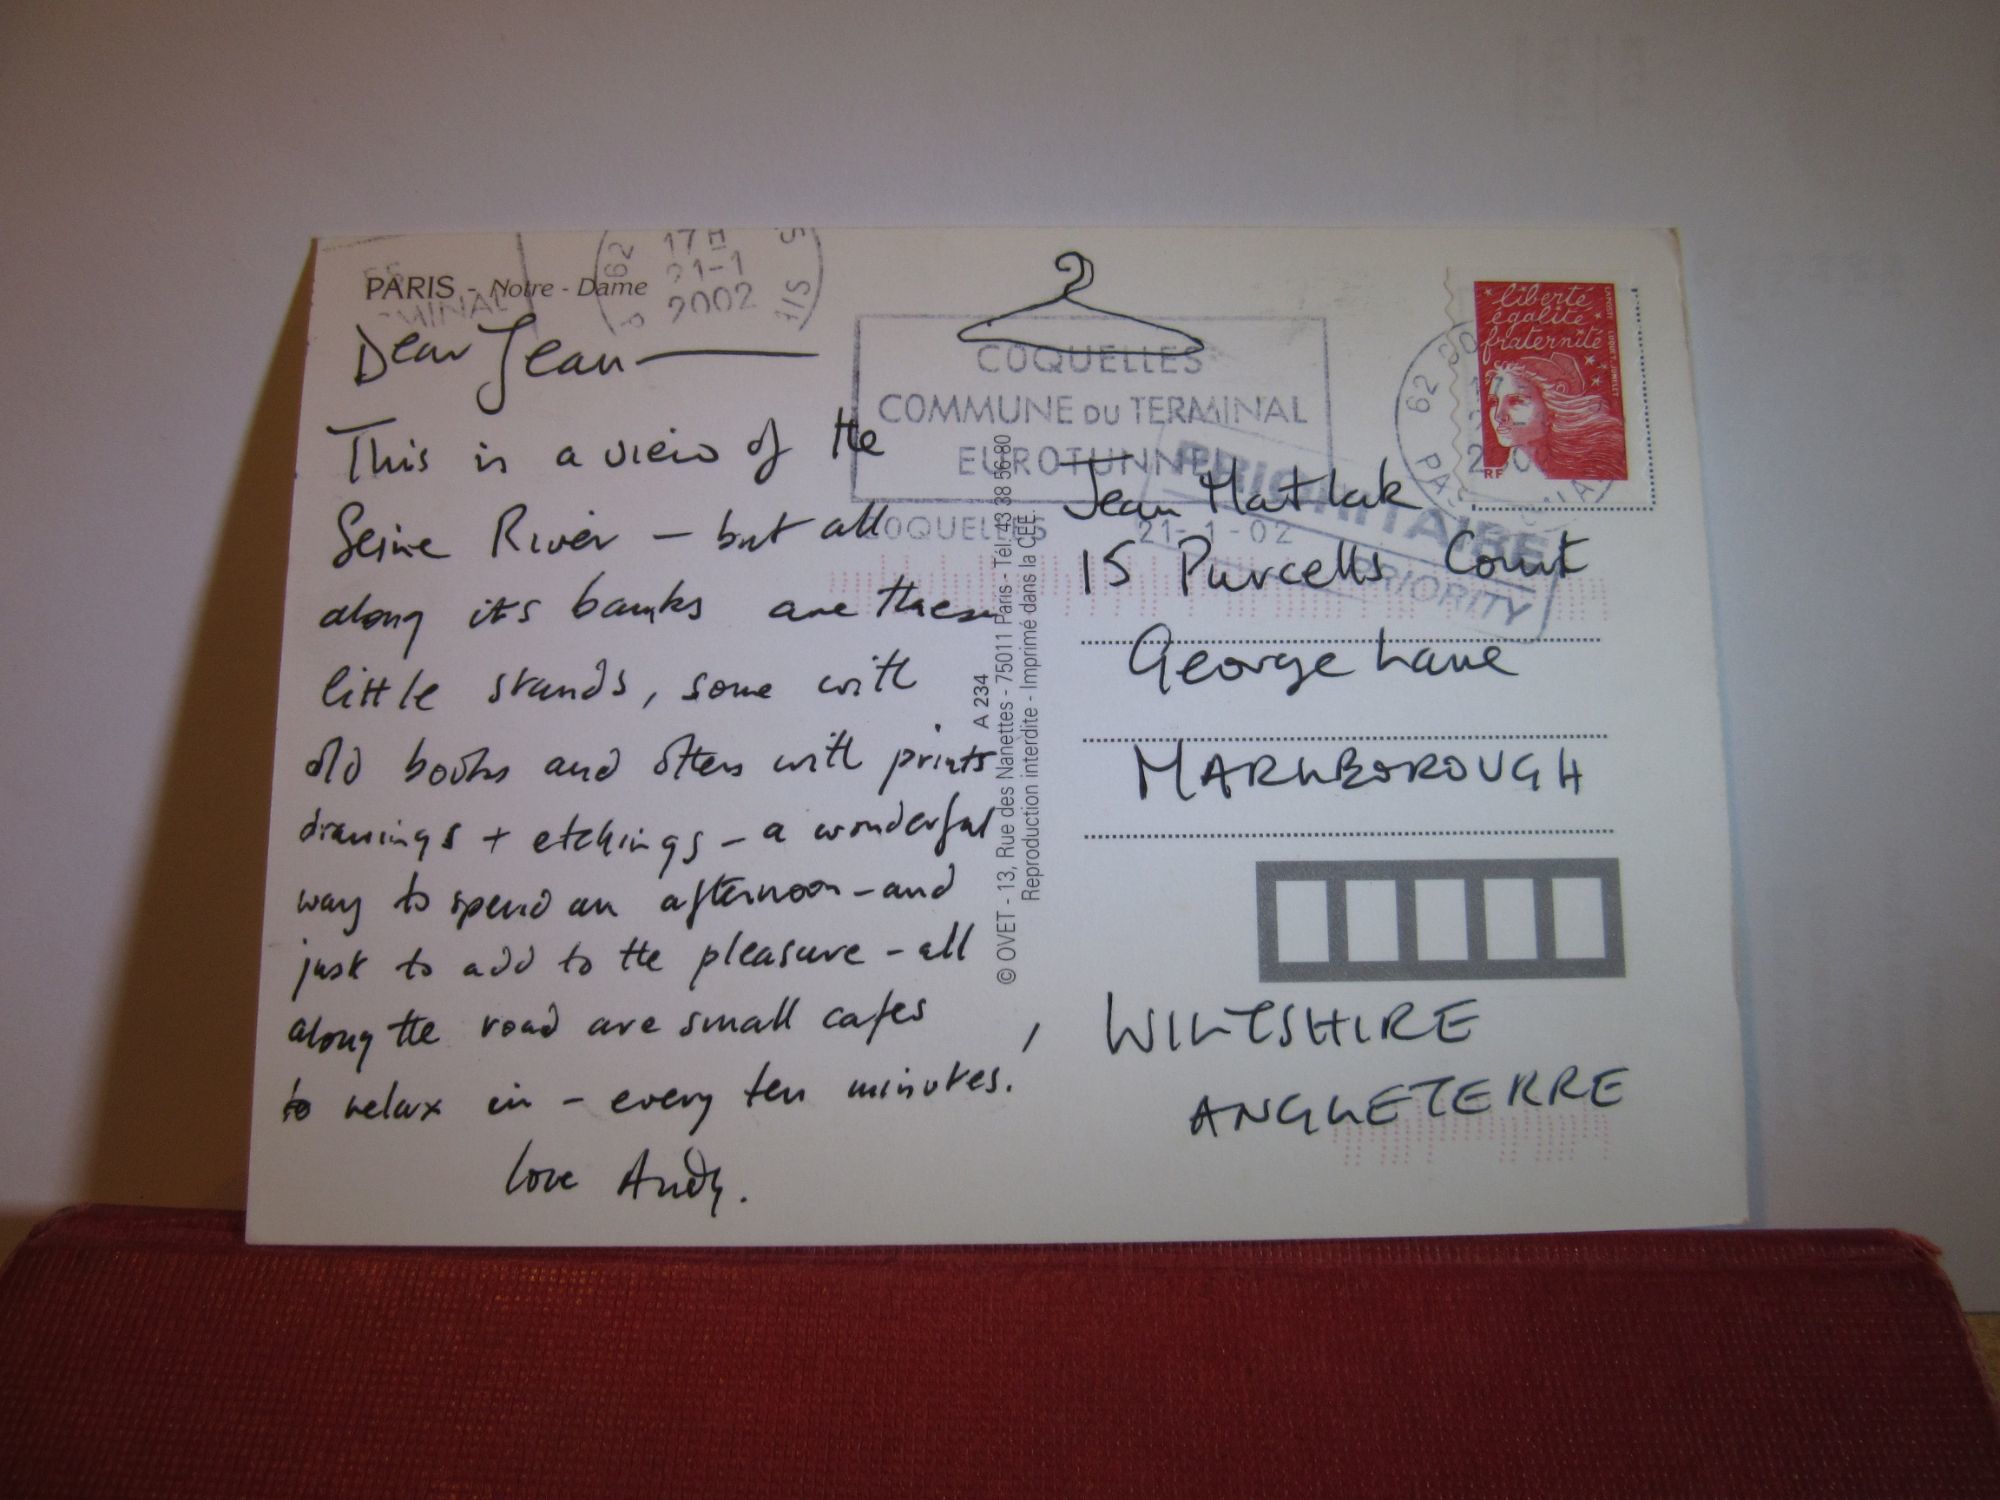 PARIS - Notre - Dame
MINAL
62
17 H
21-1
2002
Dear Jean
This is a view of the
Seine River – but all
along its banks are these
little stands, some with
old books and others with prints
drawings + etchings – a wonderful
way to spend an afternoon – and
just to add to the pleasure – all
along the road are small cafes
to relax in – every ten minutes.
love Andy.
A 234
© OVET - 13, Rue des Nanettes - 75011 Paris - Tél. 43 38 56 80
Reproduction interdite - Imprimé dans la CEE.
COQUELLES
COMMUNE DU TERMINAL
EUROTUNNEL
COQUELLES 21-1-02
PRIORITAIRE
PRIORITY
liberté
égalité
fraternité
RF
LA POSTE
62
Jean Matlak
15 Purcells Court
George Lane
MARLBOROUGH
WILTSHIRE
ANGLETERRE